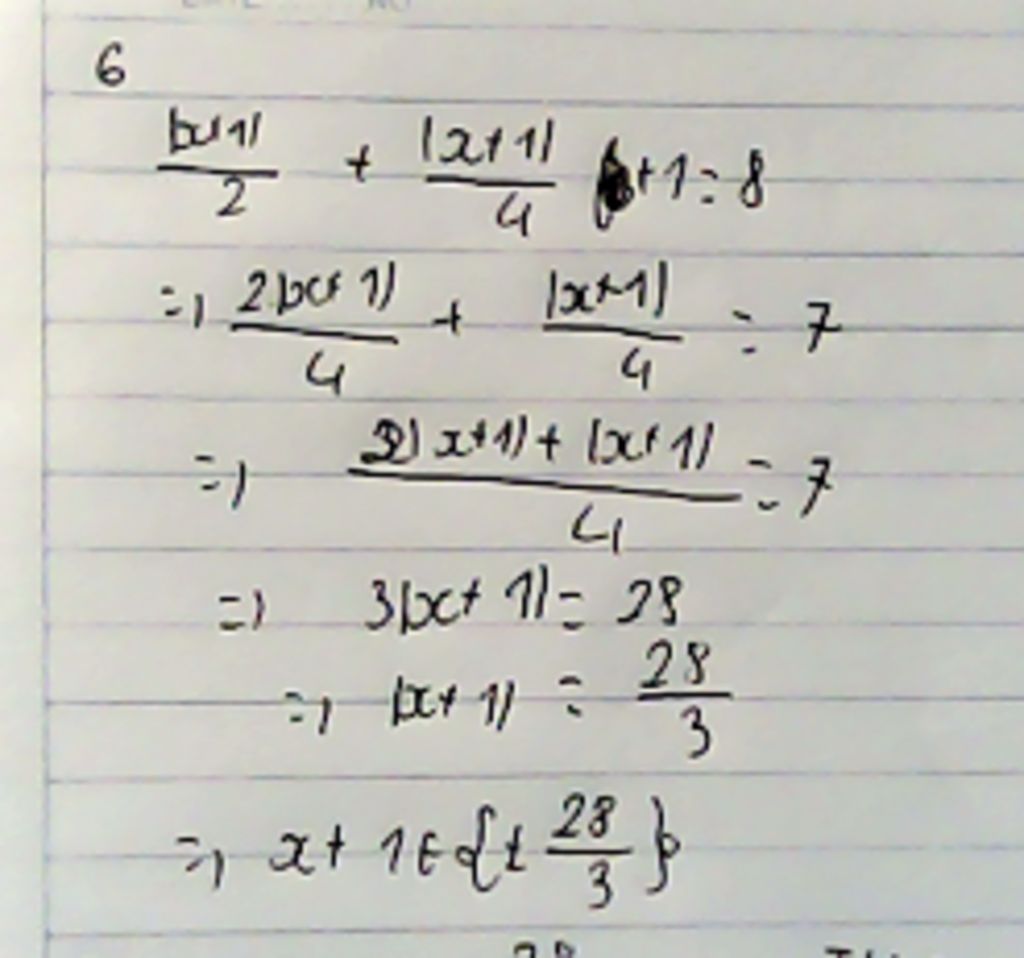 6
|x+1|/2 + |x+1|/4 +1 = 8
=> 2|x+1|/4 + |x+1|/4 = 7
=> 2|x+1| + |x+1|/4 = 7
=> 3|x+1| = 28
=> |x+1| = 28/3
=> x+1 ∈ {± 28/3}